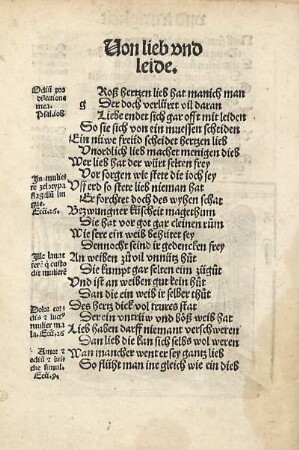 Von lieb vnd
leide.
Odiū pro
dilectione
mea.
Psal. 108
Roß hertzen lieb hat manich man
g
Der doch verlüret vil daran
Liebe endet sich gar offt mit leiden
So sie sich von ein muessen scheiden
Ein nüwe freüd scheidet hertzen lieb
Vnordlich lieb machet menigen dieb
Wer lieb hat der würt selten frey
Vor sorgen wie stete die joch sey
In muliere
zelotypa
flagellū lin
gue.
Vff erd so stete lieb nieman hat
Er forchtet doch des wyßen schat
Bezwungner küscheit magethum
Die hat vor got gar cleinen rům
Wie sere ein weib behütet sey
Dennocht seind ir gedencken frey
An weiben zůvol vnnütz hůt
Die kumpt gar selten eim zů gůt
Vnd ist an weiben gut kein hůt
Dan die ein weib ir selber thůt
Dolor cor
dis
Des hertz dick vol trures stat
Der ein vntrüw vnd böß weib hat
Lieb haben darff niemant verschweren
Dan lieb die kan sich selbs wol weren
Amor
Wan mancher went er sey gantz lieb
So flüht man ine gleich wie ein dieb